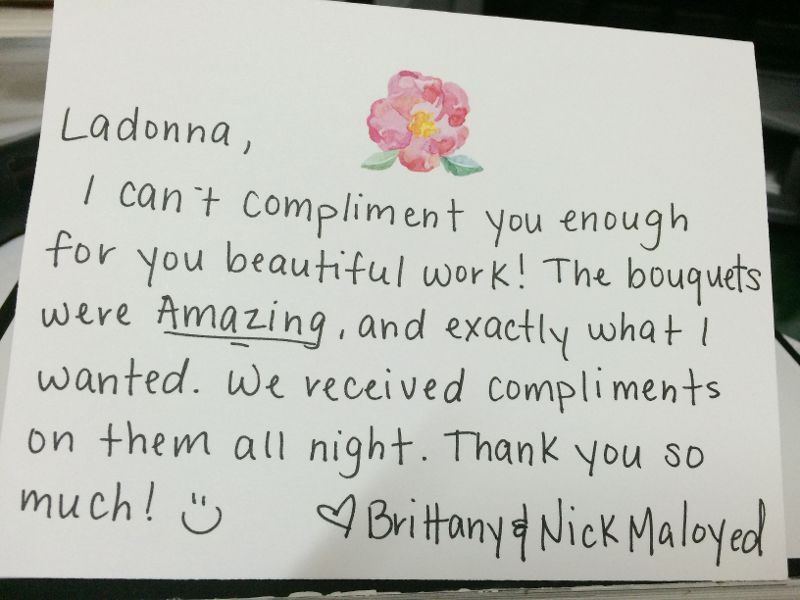 Ladonna,
I can't compliment you enough
for you beautiful work! The bouquets
were Amazing, and exactly what I
wanted. We received compliments
on them all night. Thank you so
much! :) ♡ Brittany & Nick Maloyed